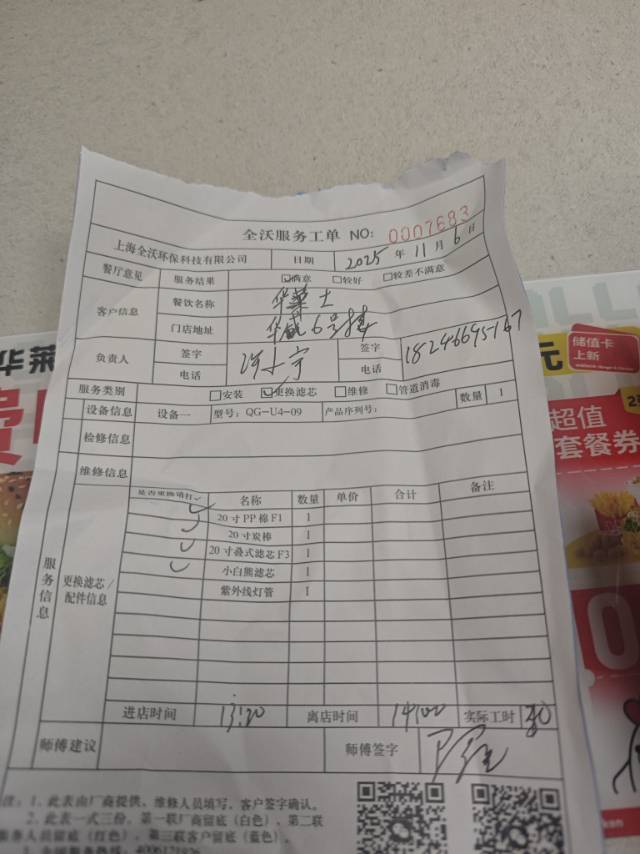 全沃服务工单 NO: 0007683
上海全沃环保科技有限公司 日期 2025年11月6日
餐厅意见 服务结果 ☑满意 □较好 □较差不满意
客户信息 餐饮名称 华莱士
门店地址 华威6号楼
负责人 签字 签字
电话 电话
服务类别 □安装 ☑更换滤芯 □维修 □管道消毒
设备信息 设备一 型号: QG-U4-09 产品序列号: 数量 1
检修信息
维修信息
服务信息
更换滤芯/配件信息
是否更换项打✓ 名称 数量 单价 合计 备注
✓ 20寸PP棉F1 1
✓ 20寸炭棒 1
✓ 20寸叠式滤芯F3 1
✓ 小白熊滤芯 1
紫外线灯管 1
进店时间 13:20 离店时间 14:00 实际工时
师傅建议 师傅签字
注: 1、此表由厂商提供、维修人员填写、客户签字确认。
2、此表一式三份, 第一联厂商留底(白色)、第二联
服务人员留底(红色)、第三联客户留底(蓝色)。
华莱
元
储值卡
上新
超值
套餐券